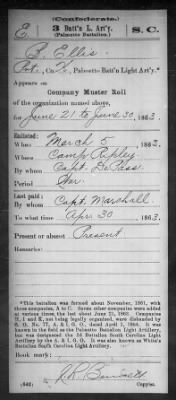 (Confederate.)
E 3 Batt'n L. Art'y. S.C.
(Palmetto Battalion.)
B. Ellis
Pvt., Co. , Palmetto Batt'n Light Art'y.*
Appears on
Company Muster Roll
of the organization named above,
for June 21 to June 30, 1862.
Enlisted:
When March 5, 1862
Where Camp Ripley
By whom Capt. DePass
Period War
Last paid:
By whom Capt. Marshall
To what time Apr. 30, 1862
Present or absent Present
Remarks:
*This battalion was formed about November, 1861, with
three companies, A to C. Some other companies were added at
various times, the last about June 21, 1862. Companies
H, I and K, not being legally organized, were disbanded by
S. O. No. 77, A. & I. G. O., dated April 1, 1864. It was
known in the field as the Palmetto Battalion Light Artillery,
but was designated as the 3d Battalion South Carolina Light
Artillery by the A. & I. G. O. It was also known as White's
Battalion South Carolina Light Artillery.
Book mark:
(642) Copyist.